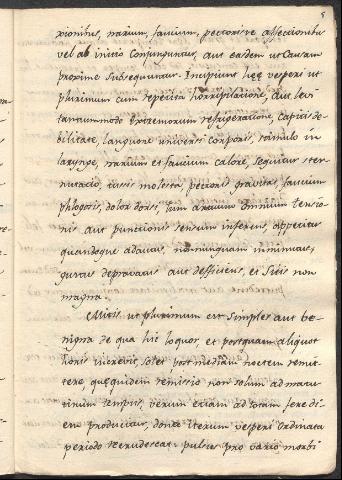 xionibus, narium, faucium, pectorisve affectionibus
vel ab initio conjunguntur, aut easdem ut causam
proxime subsequuntur. Incipiunt hęę vesperi ut
plurimum cum repetita horripilatione, aut levi
tantummodo extremorum refrigeratione, capitis de-
bilitate, languore universi corporis, stimulo in
larynge, narium et faucium calore, sequitur ster-
nutatio, tussis molesta, pectoris gravitas, faucium
phlogosis, dolor dorsi, cum artuum omnium tensio-
nis aut punctionis sensum inferens, appetitus
quandoque adauctus, nonnunquam imminutus,
gustus depravatus aut defficiens, et sitis non
magna.
Mitis ut plurimum est simplex aut be-
nigna de qua hic loquor, et postquam aliquot
horis increvit, solet post mediam noctem remit-
tere, quęquidem remissio non solum ad matu-
tinum tempus, verum etiam ad totam fere di-
em producitur, donec iterum vesperi ordinata
periodo recrudescat: pulsus pro vario morbi